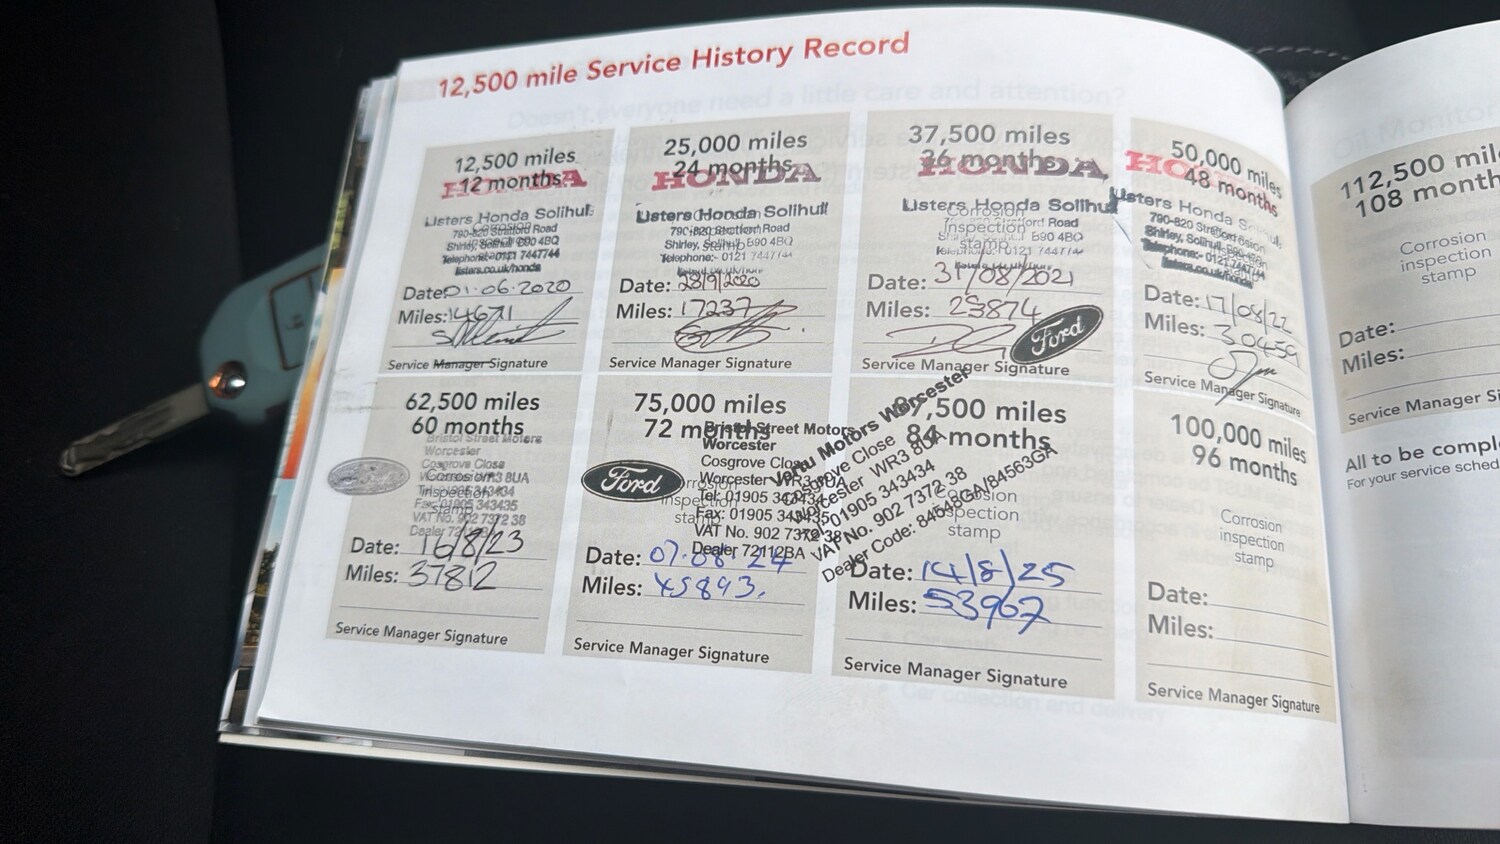 12,500 mile Service History Record
12,500 miles
12 months
HONDA
Listers Honda Solihull
790-820 Stratford Road
Shirley, Solihull B90 4BQ
Telephone:- 0121 7447744
listers.co.uk/honda
Date: 01.06.2020
Miles: 14671
Service Manager Signature
25,000 miles
24 months
HONDA
Listers Honda Solihull
790-820 Stratford Road
Shirley, Solihull B90 4BQ
Telephone:- 0121 7447744
Date: 28/9/2020
Miles: 17237
Service Manager Signature
37,500 miles
36 months
HONDA
Listers Honda Solihull
Corrosion
inspection
stamp
Stratford Road
B90 4BQ
Telephone:- 0121 7447744
Date: 31/08/2021
Miles: 23874
Ford
Service Manager Signature
50,000 miles
48 months
HONDA
Listers Honda Solihull
790-820 Stratford
Shirley, Solihull, B90
Telephone:- 0121 7447744
listers.co.uk/honda
Date: 17/08/22
Miles: 30459
Service Manager Signature
62,500 miles
60 months
Bristol Street Motors
Worcester
Cosgrove Close
Worcester WR3 8UA
Tel: 01905 343434
Fax: 01905 343435
VAT No. 902 7372 38
Dealer 72
Date: 16/8/23
Miles: 37812
Service Manager Signature
75,000 miles
72 months
Ford
Bristol Street Motors
Worcester
Cosgrove Close
Worcester WR3 8UA
Tel: 01905 343434
Fax: 01905 343435
VAT No. 902 7372 38
Dealer 72112BA
Date: 07.08.24
Miles: 45893.
Service Manager Signature
87,500 miles
84 months
Vertu Motors Worcester
Cosgrove Close
Worcester WR3 8UA
Tel: 01905 343434
VAT No. 902 7372 38
Dealer Code: 84548GA/84563GA
Corrosion
inspection
stamp
Date: 14/8/25
Miles: 53967
Service Manager Signature
100,000 miles
96 months
Corrosion
inspection
stamp
Date:
Miles:
Service Manager Signature
112,500 mil
108 month
Corrosion
inspection
stamp
Date:
Miles:
Service Manager Si
All to be compl
For your service sched